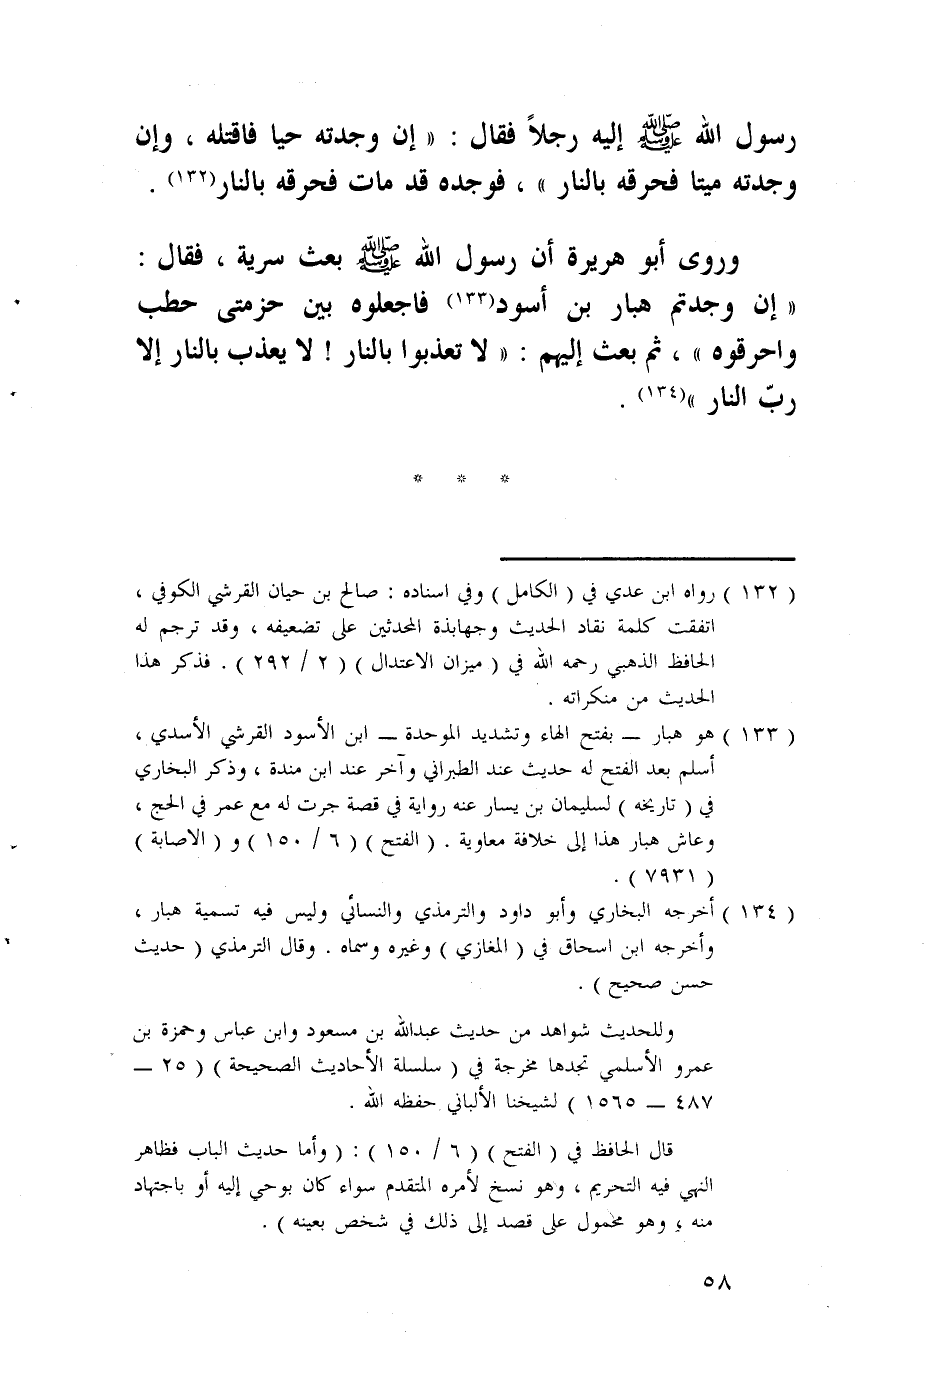 رسول الله ﷺ إليه رجلاً فقال : « إن وجدته حيا فاقتله ، وإن
وجدته ميتا فحرقه بالنار » ، فوجده قد مات فحرقه بالنار(١٣٢) .
وروى أبو هريرة أن رسول الله ﷺ بعث سرية ، فقال :
« إن وجدتم هبار بن أسود(١٣٣) فاجعلوه بين حزمتى حطب
واحرقوه » ، ثم بعث إليهم : « لا تعذبوا بالنار ! لا يعذب بالنار إلا
ربّ النار »(١٣٤) .
* * *
( ١٣٢ ) رواه ابن عدي في ( الكامل ) وفي اسناده : صالح بن حيان القرشي الكوفي ،
اتفقت كلمة نقاد الحديث وجهابذة المحدثين على تضعيفه ، وقد ترجم له
الحافظ الذهبي رحمه الله في ( ميزان الاعتدال ) ( ٢ / ٢٩٢ ) . فذكر هذا
الحديث من منكراته .
( ١٣٣ ) هو هبار ــ بفتح الهاء وتشديد الموحدة ــ ابن الأسود القرشي الأسدي ،
أسلم بعد الفتح له حديث عند الطبراني وآخر عند ابن مندة ، وذكر البخاري
في ( تاريخه ) لسليمان بن يسار عنه رواية في قصة جرت له مع عمر في الحج ،
وعاش هبار هذا إلى خلافة معاوية . ( الفتح ) ( ٦ / ١٥٠ ) و ( الاصابة )
( ٧٩٣١ ) .
( ١٣٤ ) أخرجه البخاري وأبو داود والترمذي والنسائي وليس فيه تسمية هبار ،
وأخرجه ابن اسحاق في ( المغازي ) وغيره وسماه . وقال الترمذي ( حديث
حسن صحيح ) .
وللحديث شواهد من حديث عبدالله بن مسعود وابن عباس وحمزة بن
عمرو الأسلمي تجدها مخرجة في ( سلسلة الأحاديث الصحيحة ) ( ٢٥ ــ
٤٨٧ ــ ١٥٦٥ ) لشيخنا الألباني حفظه الله .
قال الحافظ في ( الفتح ) ( ٦ / ١٥٠ ) : ( وأما حديث الباب فظاهر
النهي فيه التحريم ، وهو نسخ لأمره المتقدم سواء كان بوحي إليه أو باجتهاد
منه ، وهو محمول على قصد إلى ذلك في شخص بعينه ) .
٥٨